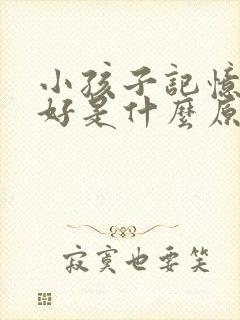 小孩子記憶
好是什麼原
寂寞也要笑